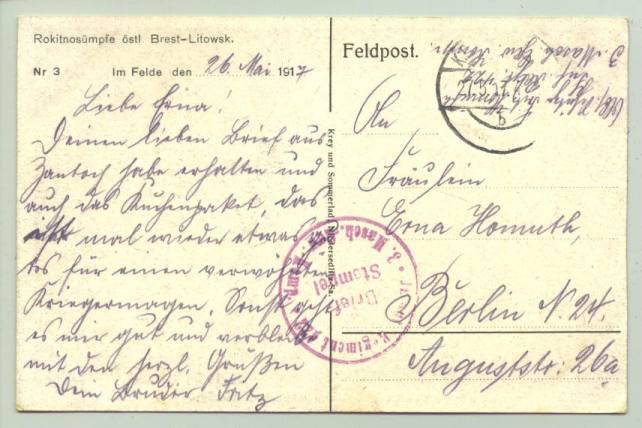 Rokitnosümpfe östl. Brest-Litowsk.
Nr 3 Im Felde den 26 Mai 1917
Liebe Erna!
Deinen lieben Brief aus
Zantoch habe erhalten und
auch das Kuchenpaket, das
ist mal wieder etwas
für einen verwöhnten
Kriegermagen. Sonst geht
es mir gut und verbleibe
mit den herzl. Grüßen
Dein Bruder Fritz
Krey und Sommerlad, Niedersedlitz-Sa.
Feldpost.
An
Fräulein
Erna Homuth,
Berlin N. 24.
Auguststr: 26a
3. Masch. Gew.
Brief
Stempel
Regiment